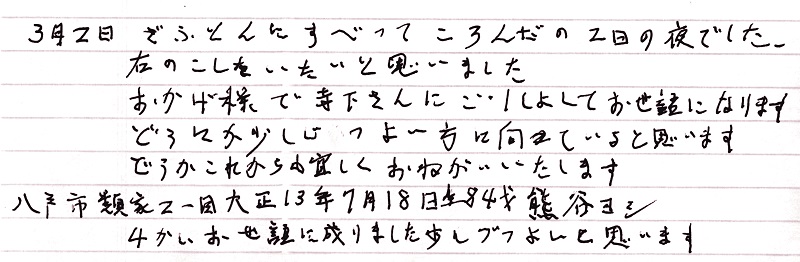 3月2日 ざふとんにすべってころんだの2日の夜でした。
右のこしをいたいと思いました
おかげ様で寺下さんにごいしよしてお世話になります
どうにか少しづつよい方に向きていると思います
どうかこれからも宜しくおねがいいたします
八戸市類家2一目大正13年7月18日生84才 熊谷ヨシ
4かいお世話に成りました少しづつよいと思います